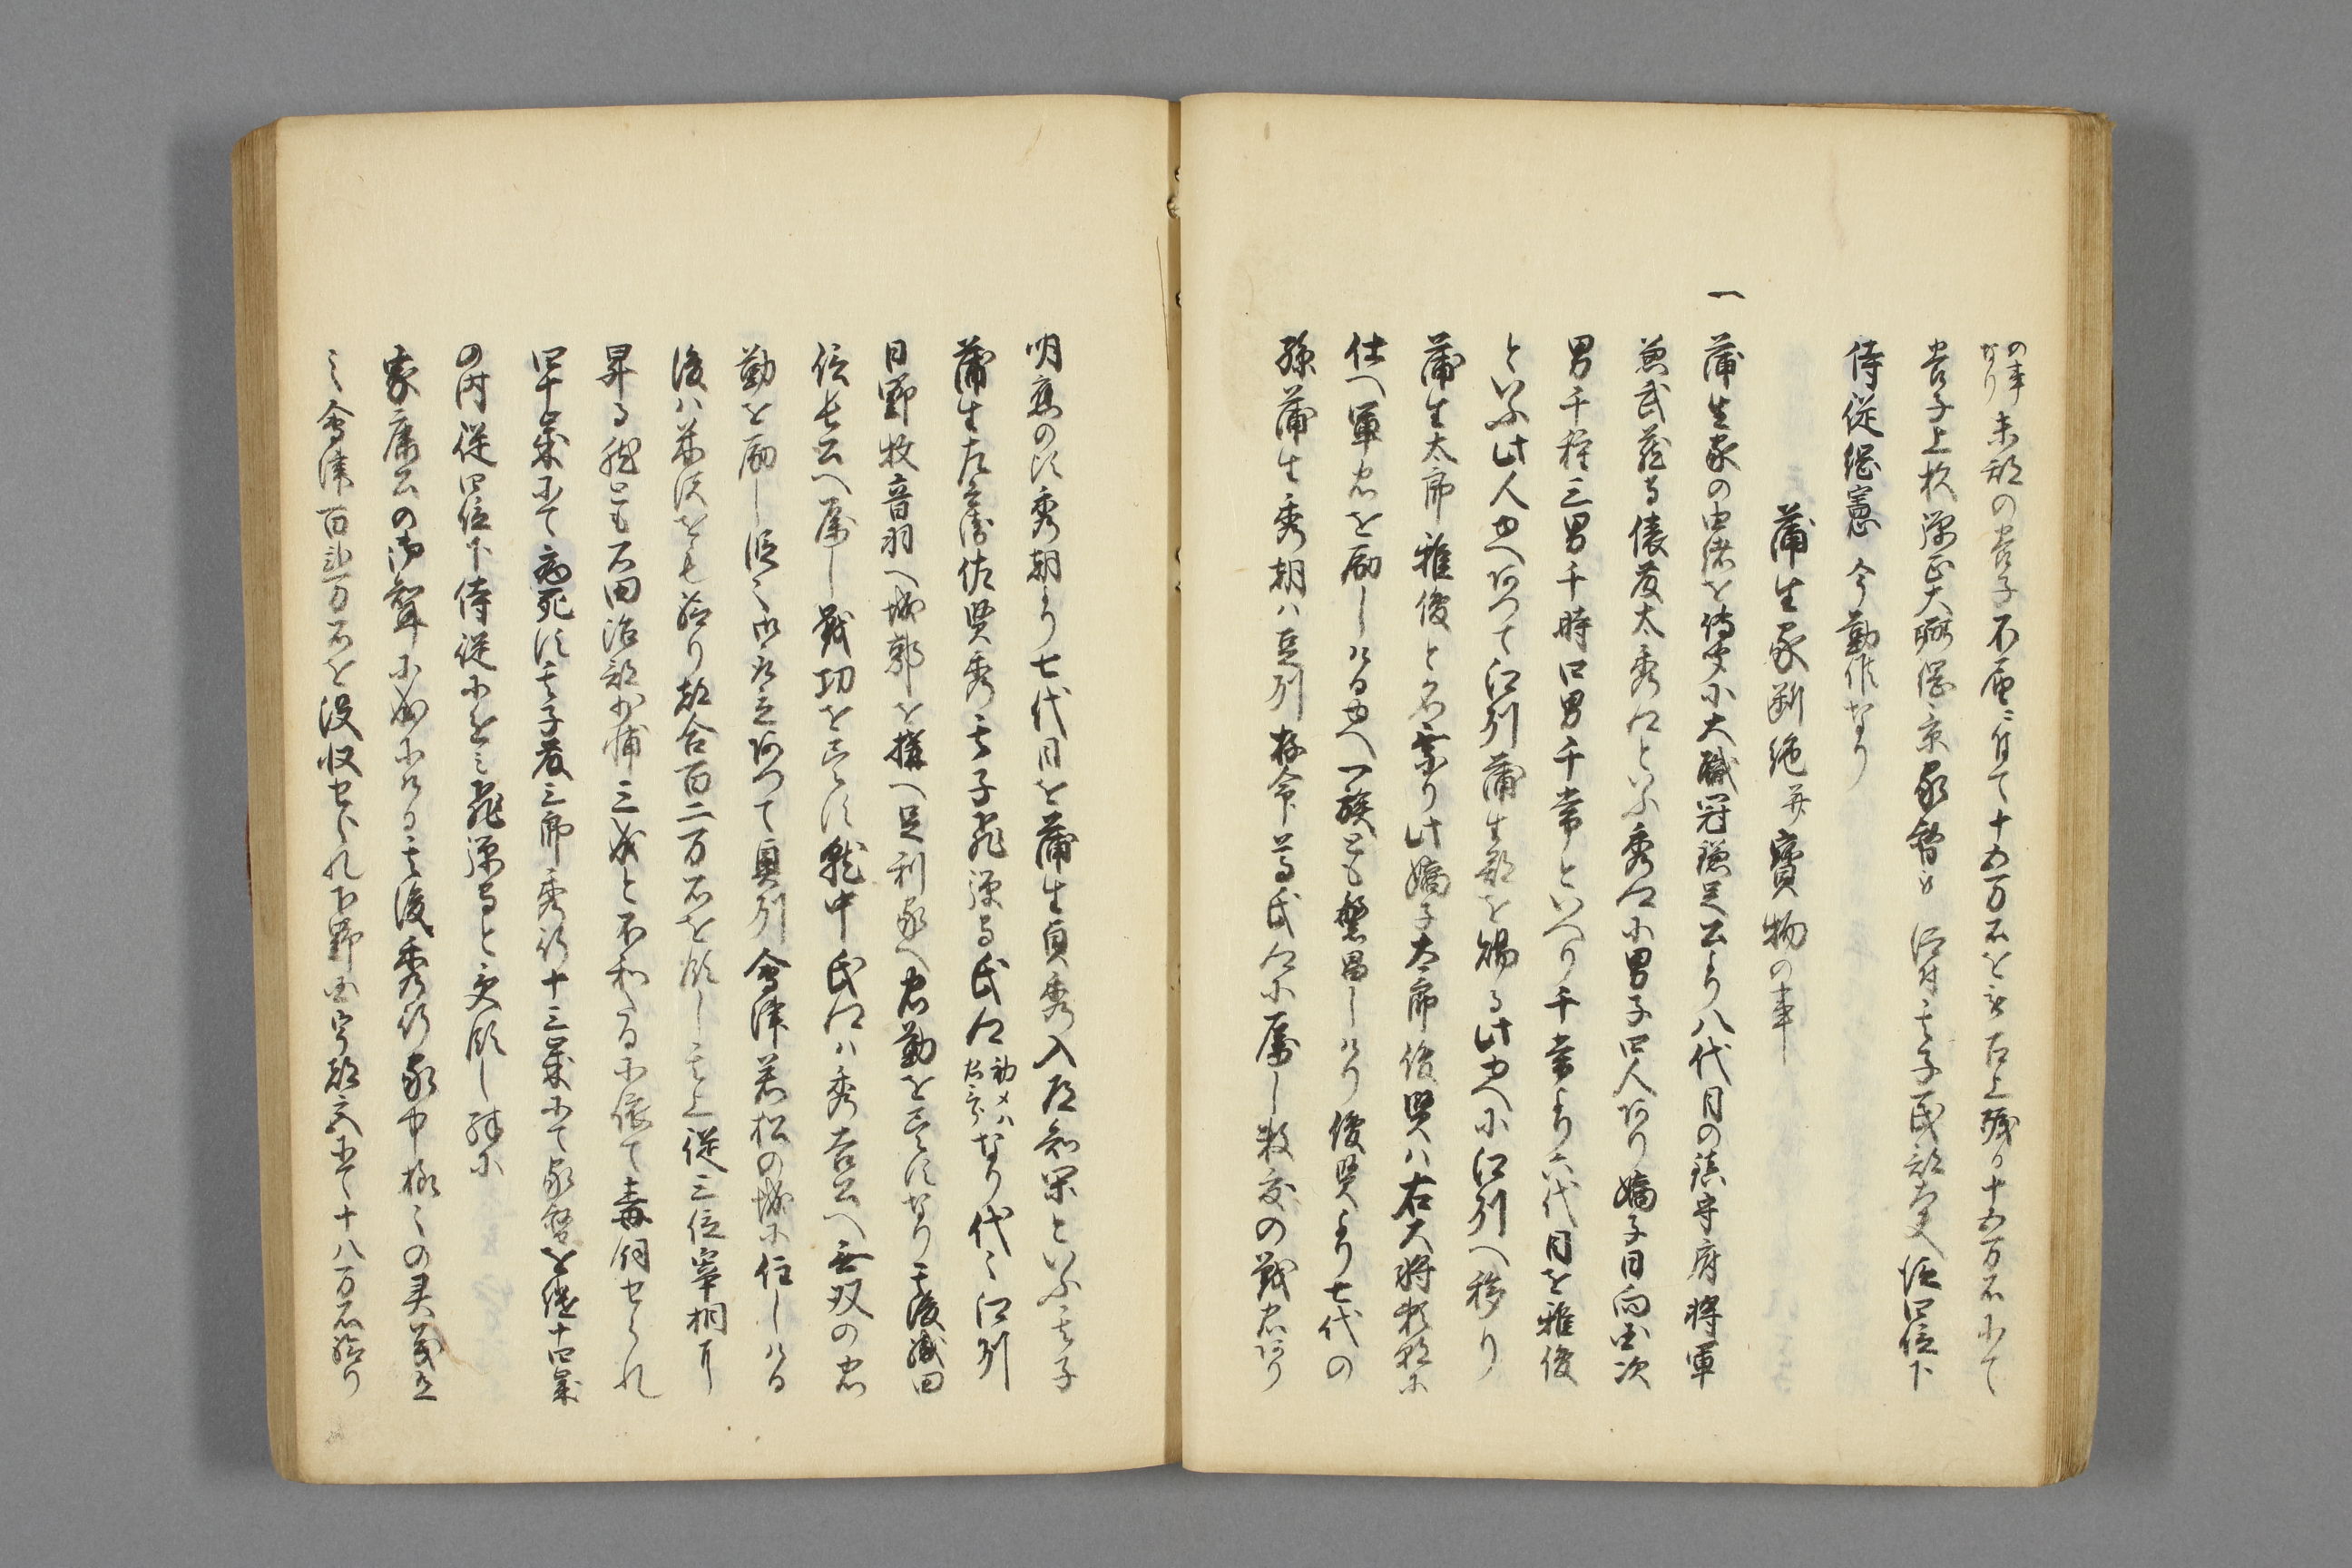 の事なり未期の養子不届ニ付て十五万石を被召上残り十五万石にて
養子上杉弾正大弼綱憲家督被仰付其子民部大輔従四位下
侍従綱憲今勤作なり
蒲生家断絶并寳物の事
一蒲生家の由緒を傳聞に大職冠鎌足公より八代目の鎮守府将軍
兼武蔵守俵藤太秀郷といふ秀郷に男子四人あり嫡子日向国次
男千種三男千時四男千常といへり千常より六代目を雅俊
といふ此人ゆへあつて江州蒲生郡を賜る此ゆへに江州へ移り
蒲生太郎雅俊と名乗り此嫡子太郎俊賢ハ右大将頼朝に
仕へ軍忠を励しけるゆへ一族とも繁昌しけり俊賢より七代の
孫蒲生秀朝ハ足利将軍尊氏郷に属し数度の戦忠あり
明應の比秀朝より七代目を蒲生貞秀入道知閑といふ其子
蒲生左兵衛佐賢秀其子飛騨守氏郷なり代々江州
日野牧音羽へ城郭を構へ足利家へ忠勤を尽すなり其後織田
信長公へ属し戦功を尽す就中氏郷ハ秀吉公へ無双の忠
勤を励し段々御取立あつて奥州會津若松の城に住しける
後ハ米沢をも給り都合百二万石を領し其上従三位宰相に
昇る然とも石田治部少輔三成と不和なるに依て毒飼せられ
四十歳にて病死す其子藤三郎秀行十三歳にて家督を継十四歳
の内従四位下侍従に任し飛騨守と受領し殊に
家康公の御聟に成にける其後秀行家中様々の異義出
之會津百弐万石を没収せられ下野国宇都宮にて十八万石給り